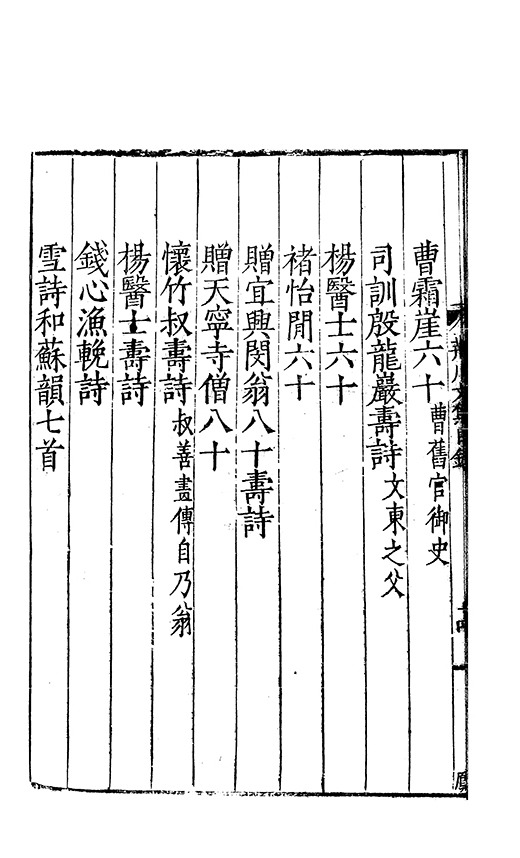 曹霜崖六十曹舊官御史
司訓殷龍巖壽詩文東之父
楊醫士六十
褚怡閒六十
贈宜興閔翁八十壽詩
贈天寧寺僧八十
懷竹叔壽詩叔善畫傳自乃翁
楊醫士壽詩
錢心漁輓詩
雪詩和蘇韻七首